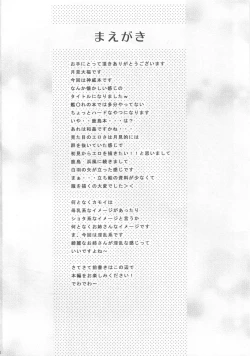 まえがき
お手にとって頂きありがとうございます
月見大福です
今回は神威本です
なんか懐かしい感じの
タイトルになりましたw
艦〇れの本では多分やってない
ちょっとハードなやつになります
いや・・鹿島本・・・は？
あれは和姦ですかね・・・
見た目のエロさは月見的には
群を抜いていた感じで
初見からエロを描きたい！！と思いまして
鹿島 浜風に続きまして
白羽の矢が立った感じです
まぁ・・・立ち絵の資料が少なくて
服を描くのに大変でした＞＜
何となくカモイは
母乳系なイメージがあったり
ショタ系なイメージと言うか
何となくお姉さんなイメージです
ま、今回は淫乱系です
綺麗なお姉さんが淫乱な感じって
いいですよね～
さてさて前書きはこの辺で
本編をお楽しみください！
でわでわ～